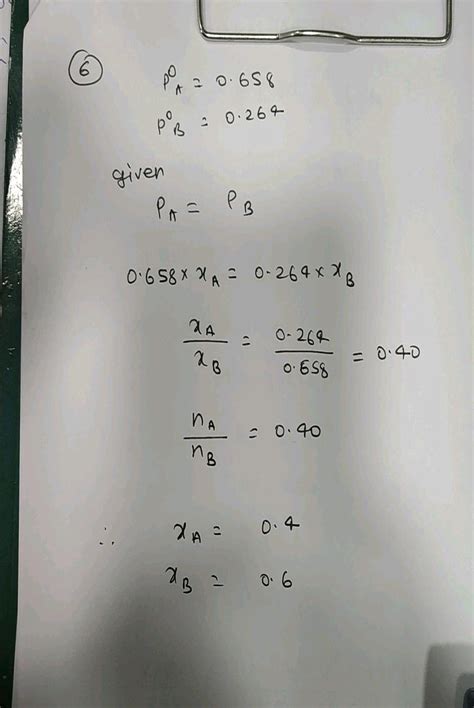 6
P⁰A = 0.658
P⁰B = 0.264
given
PA = PB
0.658 × xA = 0.264 × xB
xA / xB = 0.264 / 0.658 = 0.40
nA / nB = 0.40
∴ xA = 0.4
xB = 0.6